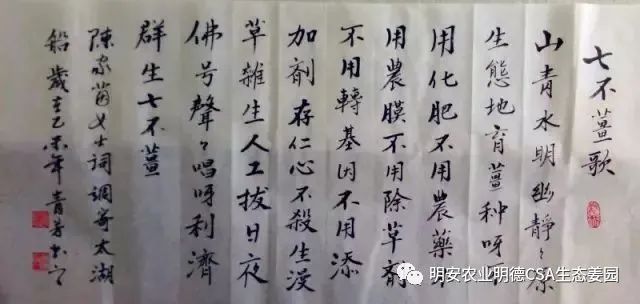 七不薑歌
山青水明幽靜〻原
生態地育薑種呀不
用化肥不用農藥不
用農膜不用除草劑
不用轉基因不用添
加劑存仁心不殺生漫
草雜生人工拔日夜
佛号聲〻唱呀利濟
群生七不薑
陳家茵女士詞調寄太湖
船歲在乙未年青芳書
明安农业明德CSA生态姜园